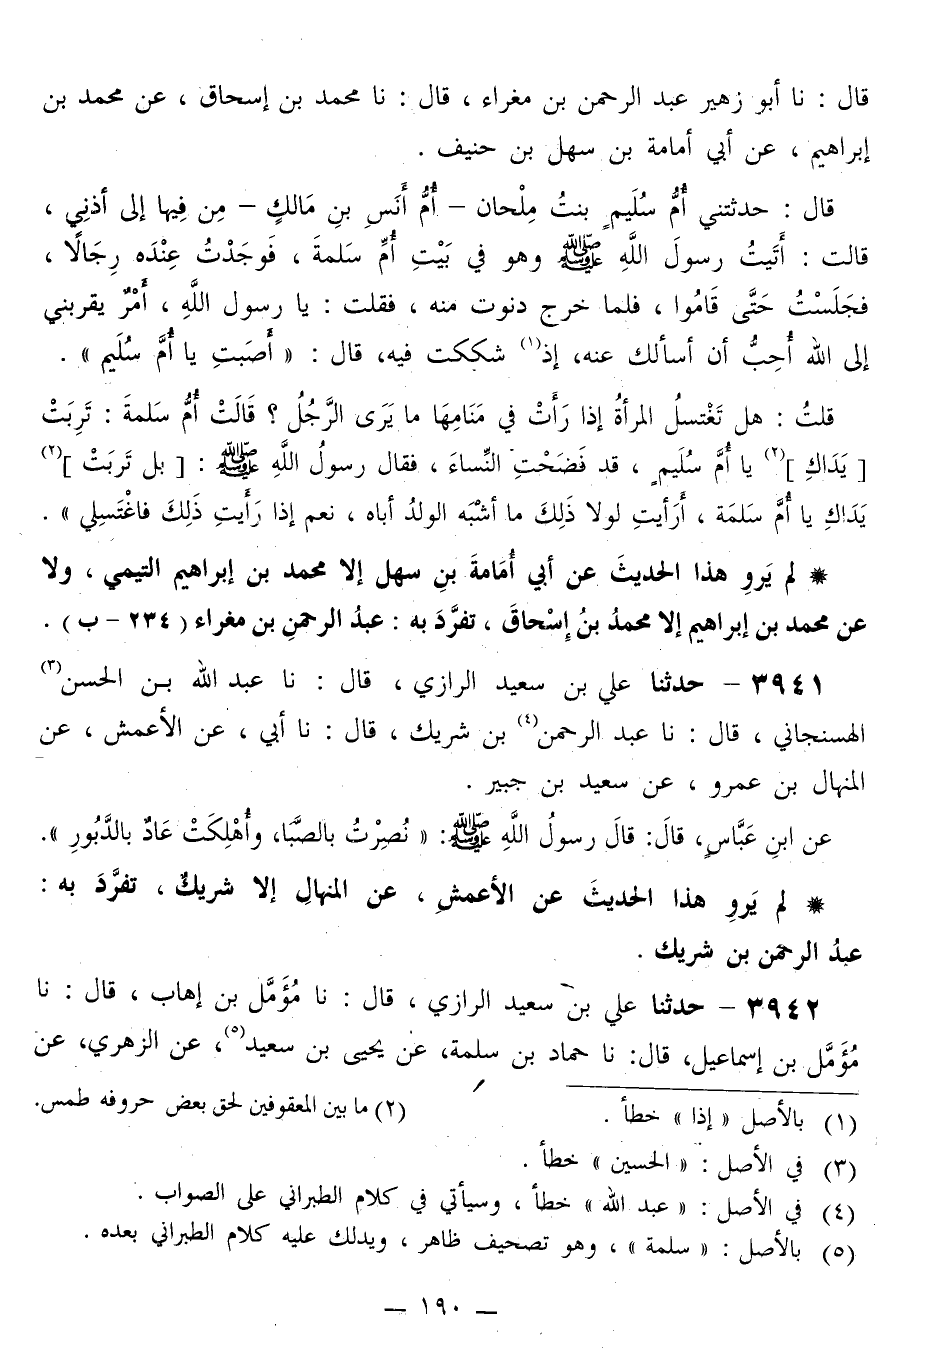 قال : نا أبو زهير عبد الرحمن بن مغراء ، قال : نا محمد بن إسحاق ، عن محمد بن
إبراهيم ، عن أبي أمامة بن سهل بن حنيف .
قال : حدثتني أُمُّ سُلَيمٍ بنتُ مِلْحان – أُمُّ أَنَسِ بنِ مَالكٍ – مِن فِيها إلى أذنِي ،
قالت : أَتَيتُ رسولَ اللَّهِ ﷺ وهو في بَيْتِ أُمِّ سَلمةَ ، فَوجَدْتُ عِنْده رِجَالًا ،
فجَلَسْتُ حَتَّى قَامُوا ، فلما خرج دنوت منه ، فقلت : يا رسول اللَّهِ ، أَمْرٌ يقربني
إلى الله أُحِبُّ أن أسألك عنه، إذ(١) شككت فيه، قال : « أَصَبتِ يا أُمَّ سُلَيم » .
قلتُ : هل تَغْتسلُ المرأةُ إذا رَأَتْ في مَنَامِهَا ما يَرَى الرَّجُلُ ؟ قَالَتْ أُمُّ سَلمةَ : تَرِبَتْ
[ يَدَاكِ ](٢) يا أُمَّ سُلَيمٍ ، قد فَضَحْتِ النِّساءَ ، فقال رسولُ اللَّهِ ﷺ : [ بل تَربَتْ ](٢)
يَدَاكِ يا أُمَّ سَلمَة ، أَرأَيتِ لولا ذَلِكَ ما أشْبَه الولدُ أباه ، نعم إذا رَأَيتِ ذَلِكَ فاغْتَسِلِي » .
* لم يَروِ هذا الحديثَ عن أبي أُمَامةَ بنِ سهل إلا محمد بن إبراهيم التيمي ، ولا
عن محمد بن إبراهيم إلا محمدُ بنُ إسْحاقَ ، تفرَّدَ به : عبدُ الرحمنِ بن مغراء ( ٢٣٤ – ب ) .
٣٩٤١ – حدثنا علي بن سعيد الرازي ، قال : نا عبد الله بن الحسن(٣)
الهسنجاني ، قال : نا عبد الرحمن(٤) بن شريك ، قال : نا أبي ، عن الأعمش ، عن
المنهال بن عمرو ، عن سعيد بن جبير .
عن ابنِ عَبَّاسٍ، قالَ: قالَ رسولُ اللَّهِ ﷺ: « نُصِرْتُ بالصَّبَا، وأُهْلِكَتْ عَادٌ بالدَّبُورِ ».
* لم يَروِ هذا الحديثَ عن الأعمشِ ، عن المنهالِ إلا شريكٌ ، تفرَّدَ به :
عبدُ الرحمن بن شريك .
٣٩٤٢ – حدثنا علي بن سعيد الرازي ، قال : نا مُؤَمَّل بن إهاب ، قال : نا
مُؤَمَّل بن إسماعيل، قال: نا حماد بن سلمة، عن يحيى بن سعيد(٥)، عن الزهري، عن
(١) بالأصل « إذا » خطأ . (٢) ما بين المعقوفين لحق بعض حروفه طمس.
(٣) في الأصل : « الحسين » خطأ .
(٤) في الأصل : « عبد الله » خطأ ، وسيأتي في كلام الطبراني على الصواب .
(٥) بالأصل : « سلمة » ، وهو تصحيف ظاهر ، ويدلك عليه كلام الطبراني بعده .
– ١٩٠ –